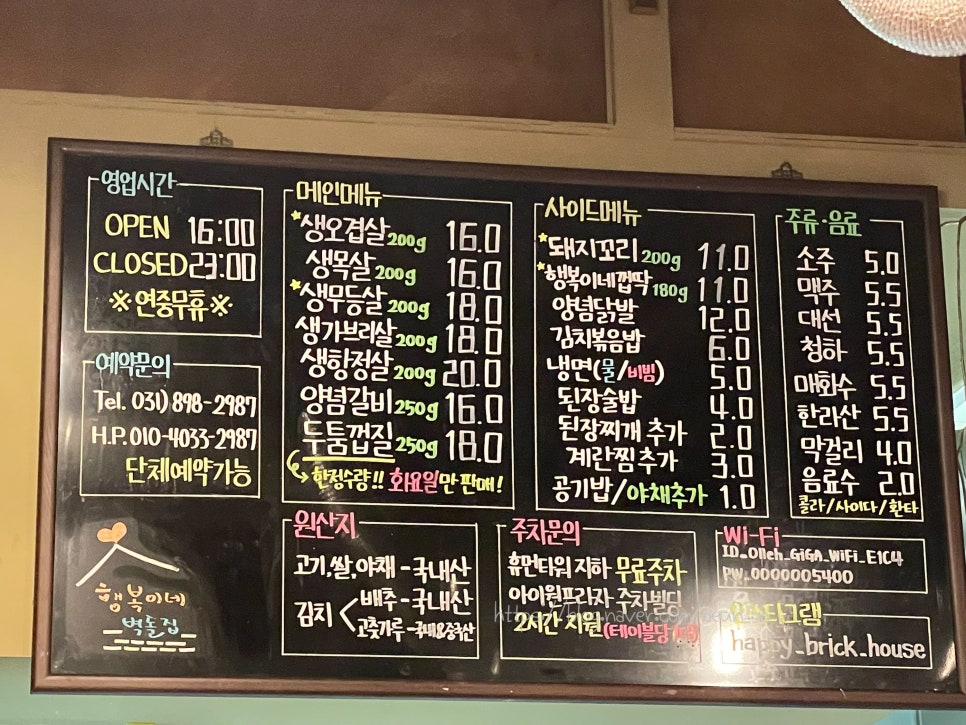 영업시간
OPEN 16:00
CLOSED 23:00
※연중무휴※
예약문의
Tel. 031) 898-2987
H.P. 010-4033-2987
단체예약가능
행복이네
벽돌집
메인메뉴
*생오겹살 200g 16.0
생목살 200g 16.0
*생무등살 200g 18.0
생가브리살 200g 18.0
생항정살 200g 20.0
양념갈비 250g 16.0
두툼껍질 250g 18.0
한정수량!! 화요일만 판매!
사이드메뉴
*돼지꼬리 200g 11.0
*행복이네껍딱 180g 11.0
양념닭발 12.0
김치볶음밥 6.0
냉면(물/비빔) 5.0
된장술밥 4.0
된장찌개 추가 2.0
계란찜 추가 3.0
공기밥/야채추가 1.0
주류·음료
소주 5.0
맥주 5.5
대선 5.5
청하 5.5
매화수 5.5
한라산 5.5
막걸리 4.0
음료수 2.0
콜라/사이다/환타
원산지
고기,쌀,야채-국내산
김치 < 배추-국내산
고춧가루-국내&중국산
주차문의
휴먼타워 지하 무료주차
아이원프라자 주차빌딩
2시간 지원(테이블당
Wi-Fi
ID_Olleh_GiGA_WiFi_E1C4
PW_0000005400
인스타그램
happy_brick_house